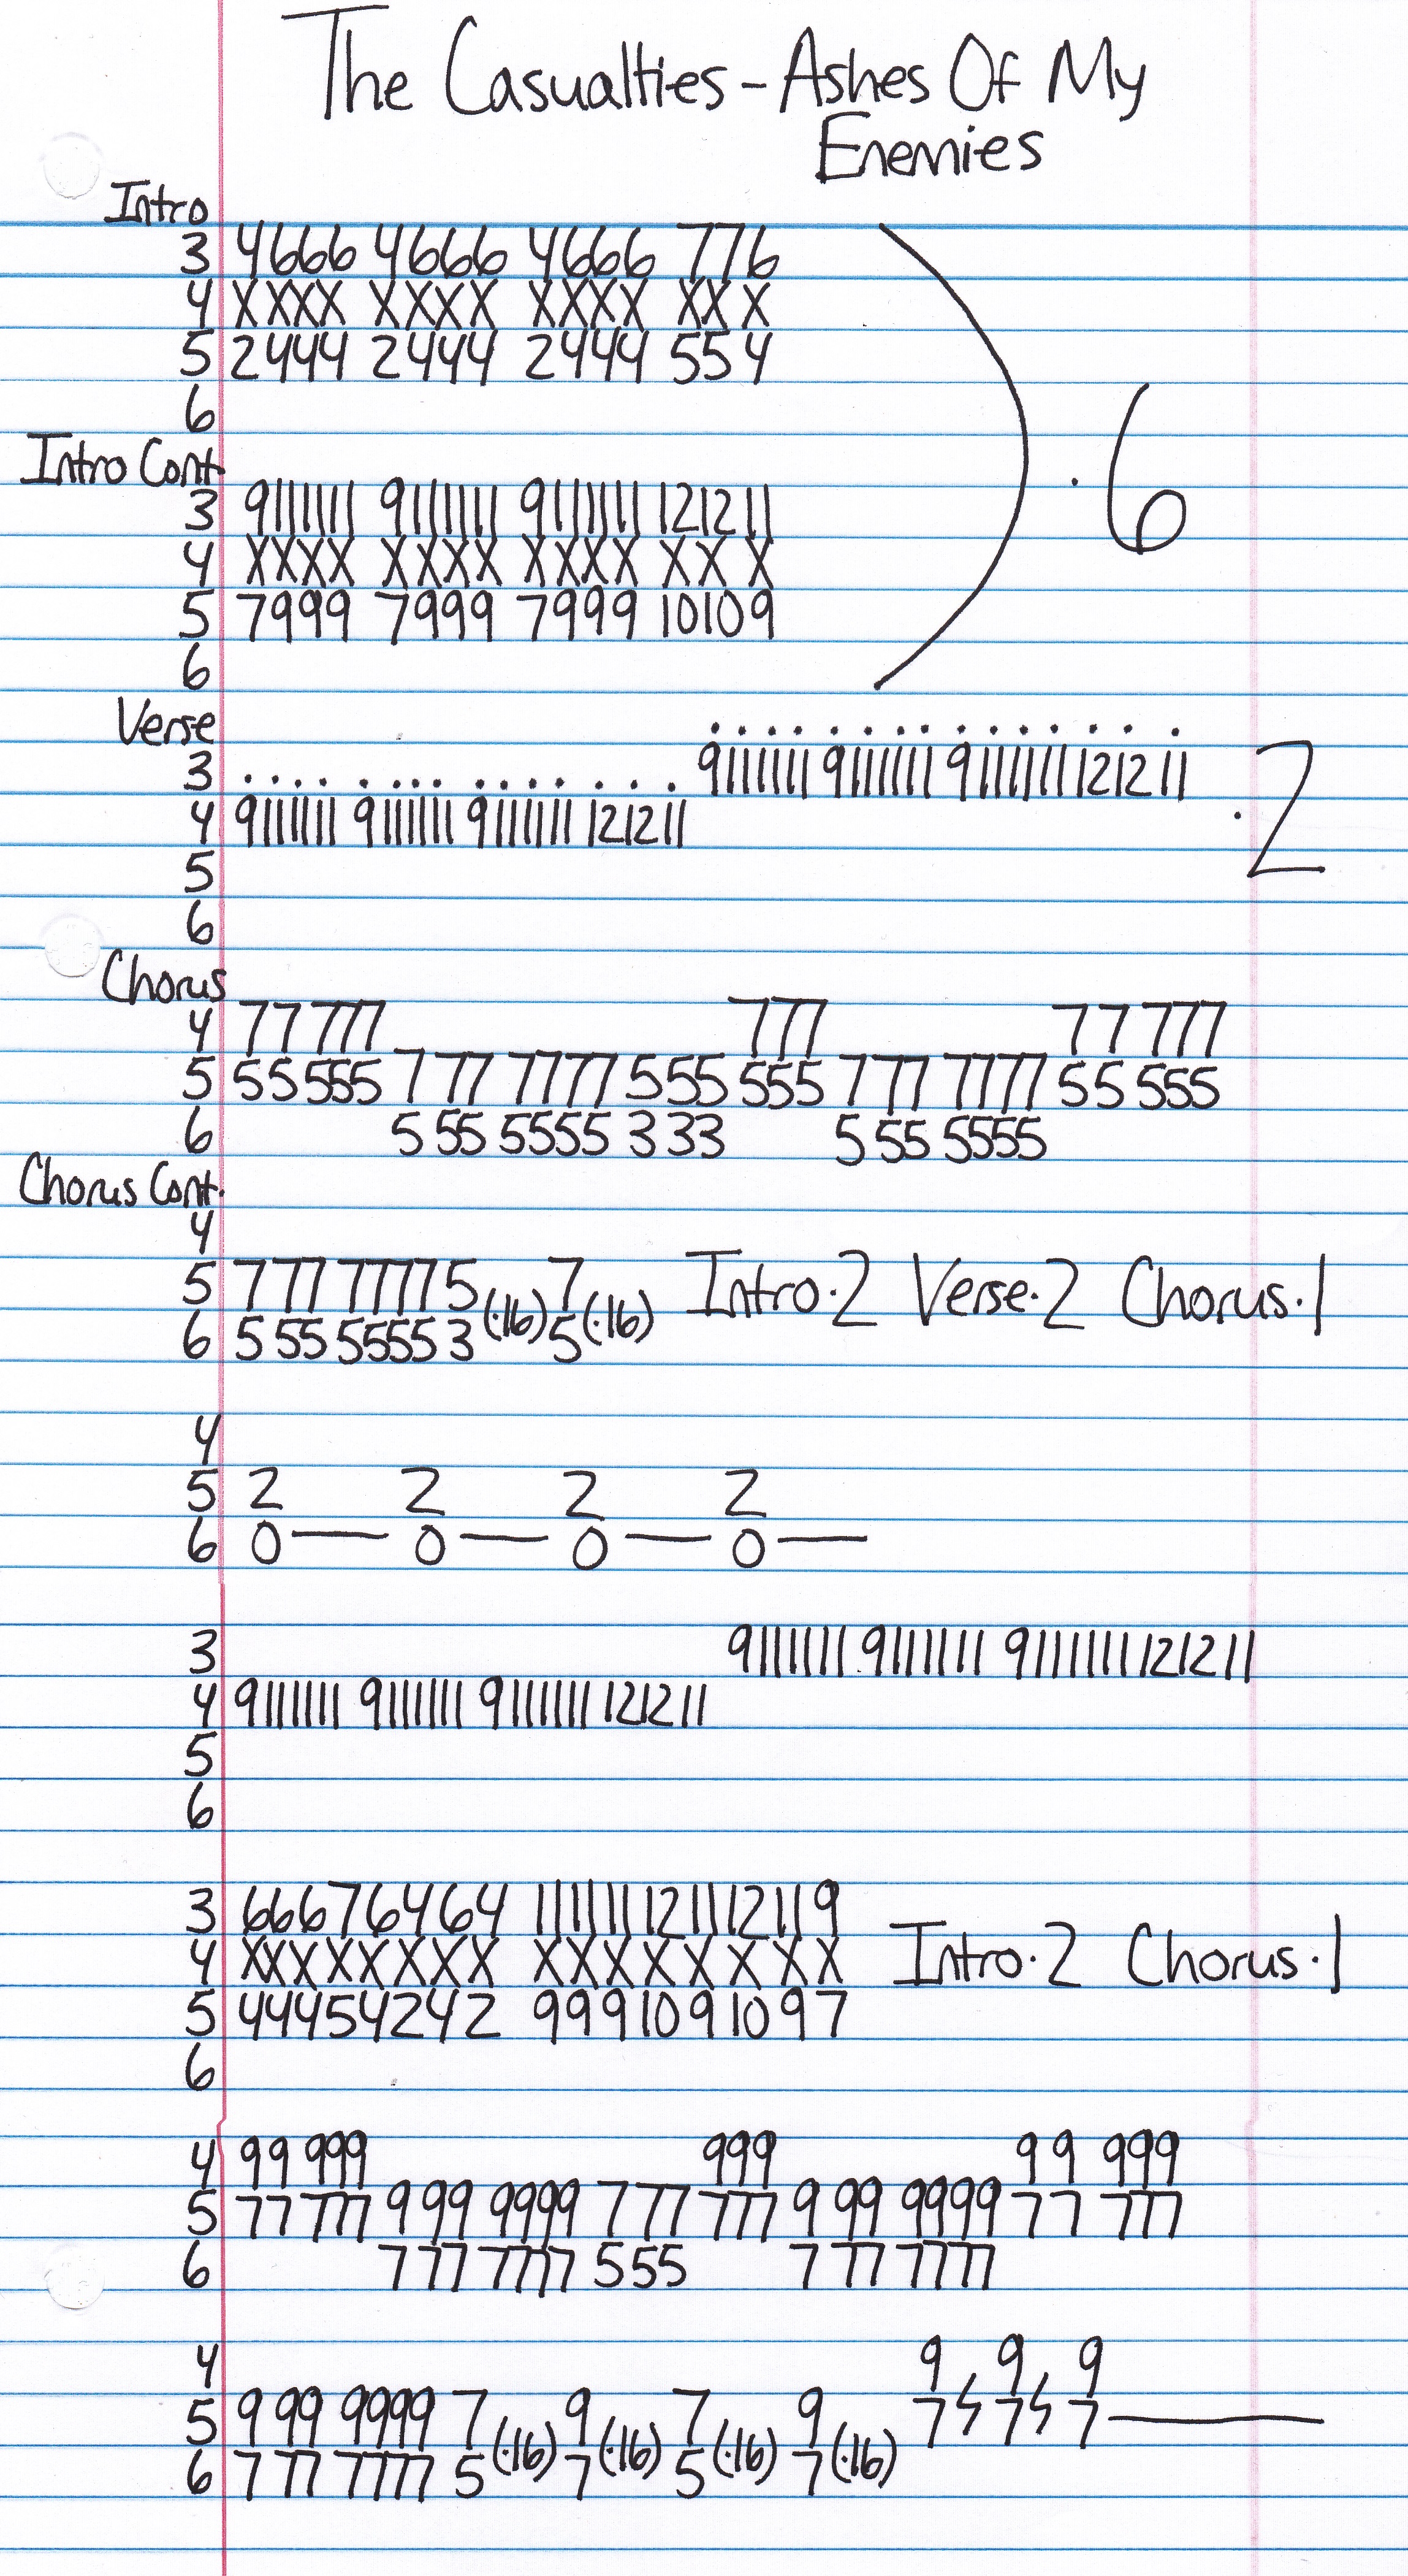 The Casualties - Ashes Of My
Enemies
Intro
3 4666 4666 4666 776
4 XXXX XXXX XXXX XX X
5 2444 2444 2444 55 4
6
· 6
Intro Cont
3 9111111 9111111 9111111 121211
4 XXXX XXXX XXXX XX X
5 7999 7999 7999 10109
6
Verse
3 . . . . . . . . . . . . . . . 9111111 9111111 9111111 121211
4 9111111 9111111 9111111 121211
· 2
5
6
Chorus
4 77 777 777 77 777
5 55555 7 77 7777 555 555 777 7777 55 555
6 5 55 5555 3 33 5 55 5555
Chorus Cont.
4
5 7 77 7777 5 7 Intro·2 Verse·2 Chorus·1
6 5 55 5555 3 (·16) 5 (·16)
4
5 2 2 2 2
6 0— 0— 0— 0—
3 9111111 9111111 9111111 121211
4 9111111 9111111 9111111 121211
5
6
3 66676464 111111121112119 Intro·2 Chorus·1
4 XXXXXXXX XXXXXXXX
5 44454242 9991091097
6
4 99 999 999 99 999
5 77 777 9 99 9999 777 777 9 99 9999 77 777
6 7 77 7777 555 7 77 7777
4 9 9 9
5 9 99 9999 7 9 7 9 7 7 7—
6 7 77 7777 5 (·16) 7 (·16) 5 (·16) 7 (·16)